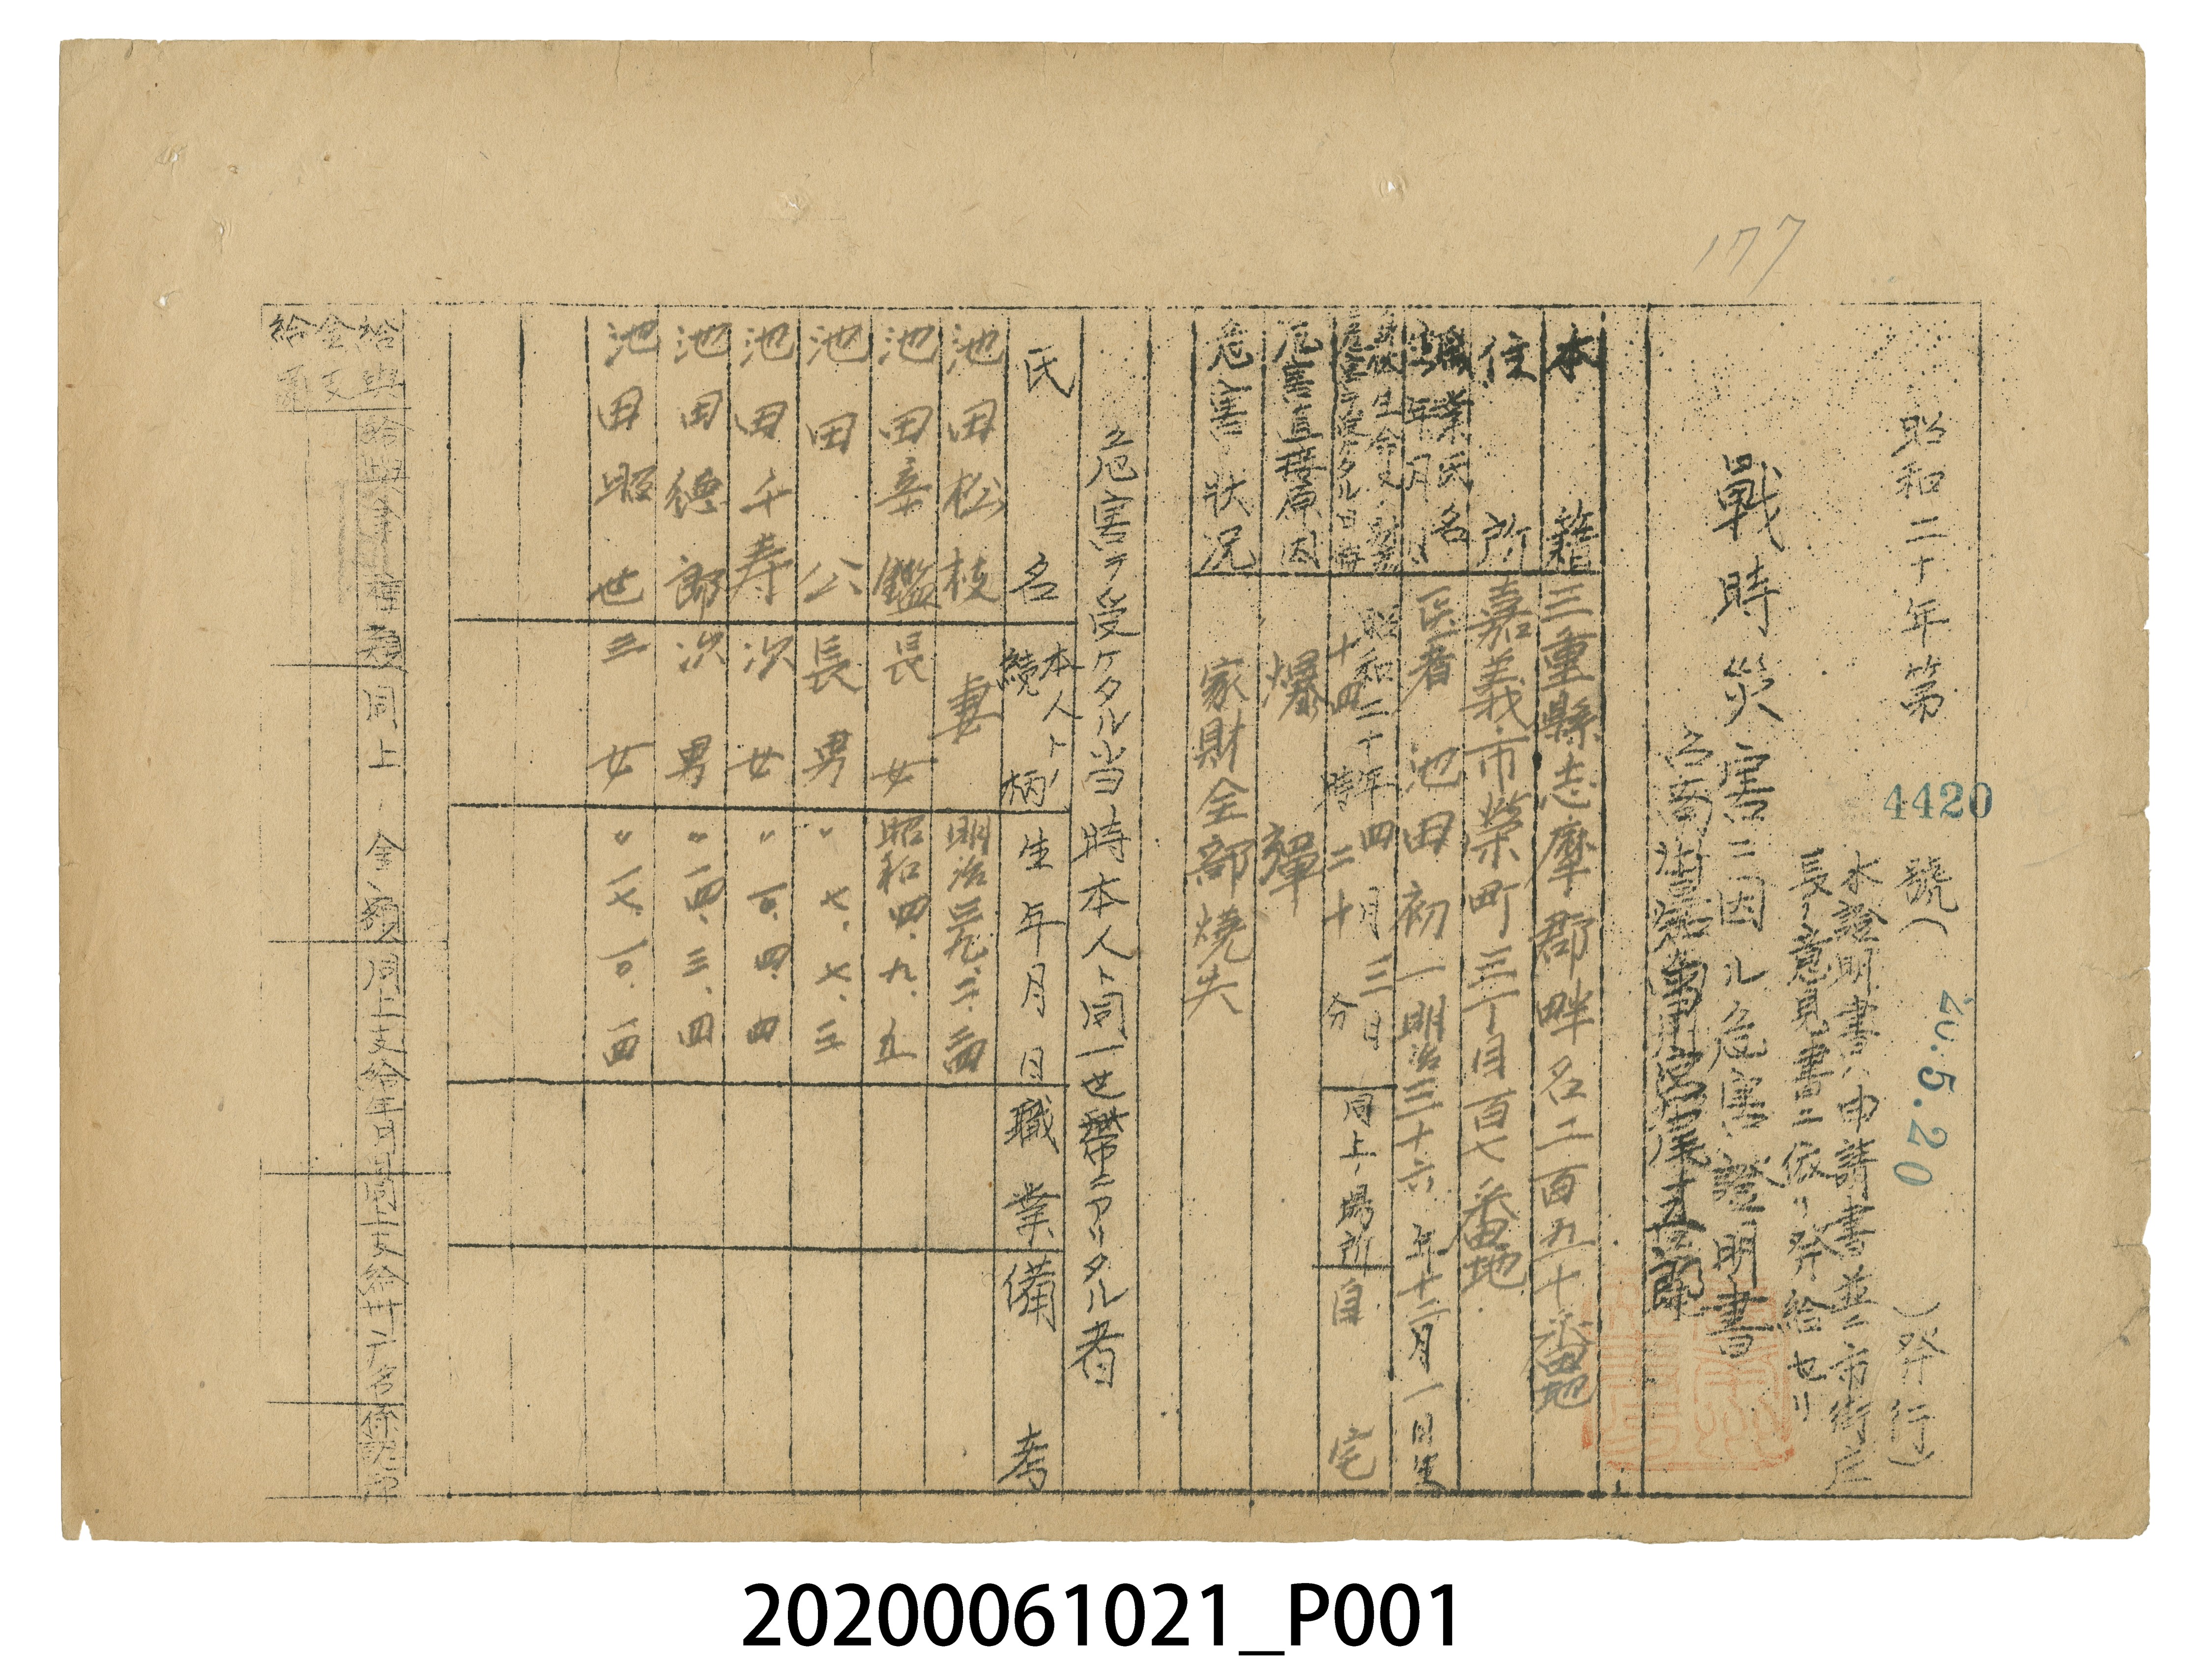 177
昭和二十年第4420號(20.5.20)発行)
本證明書ハ申請書並ニ市街庄
長ノ意見書ニ依リ発給セリ
戰時災害ニ因ル危害證明書
本籍 三重縣志摩郡畔名二百九十番地
住所 嘉義市榮町三丁目百七番地
職業氏名 生年月日 医者 池田初一 明治三十六年十二月一日生
危害ヲ受ケタル日時 昭和二十年四月三日
十四時二十分
同上ノ場所 自宅
危害直接原因 爆彈
危害ノ状況 家財全部燒失
危害ヲ受ケタル当時本人ト同一世帶ニアリタル者
氏名 本人トノ續柄 生年月日 職業 備考
池田松枝 妻 明治
池田幸鑑 長女 昭和四.九.五
池田公 長男 〃 七.七.三
池田千寿 次女 〃 四.四
池田德郎 次男 〃 一四.三.四
池田照世 三女 〃 一七.一〇.一四
給與金支給
給與金ノ種類 同上ノ金額 同上支給年月日 同上支給廳名 係認印
20200061021_P001